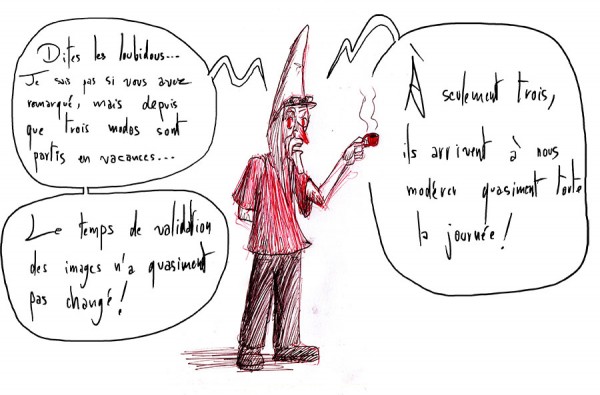 Dites les loubidous...
Je sais pas si vous avez
remarqué, mais depuis
que trois modos sont
partis en vacances...
Le temps de validation
des images n'a quasiment
pas changé!
À seulement trois,
ils arrivent à nous
modérer quasiment toute
la journée!